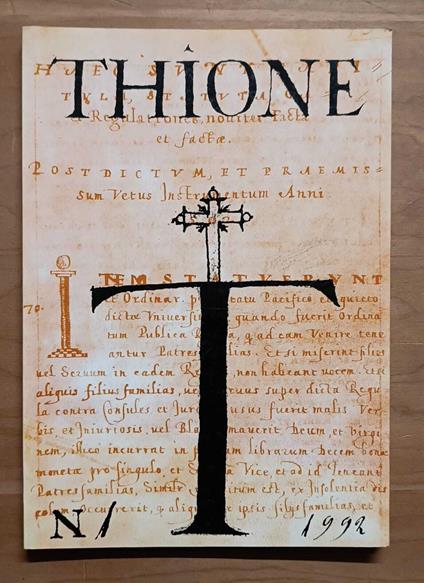 THIONE
HAEC SUNT
TULI, STATUTA,
Regulationes, noviter facta
et factæ.
POST DICTUM, ET PRAEMIS=
sum Vetus Instrumentum Anni
70.
ITEM STATUERUNT
et Ordinar. Statu Pacifico et quieto
dictæ Universi quando fuerit Ordina
tum Publica ad eam Venire tene
antur Patres lias. Et si miserint filios
uel Seruum in eadem non habeant uocem. Et si
aliquis filius familias, uel uus super dicta Regu
la contra Consules et Jur usus fuerit malis Ver=
bis et Iniuriosis, uel Bla mauerit Deum, et Virgi
nem, illico incurrat in pœnam librarum Decem bonæ
monetæ pro singulo, et Vice, et ad id Teneant
Patres familias, Simile itum est, ex Insolentia
occurrerit, aliqu ipsis filijs familias, et
N 1 1992
T